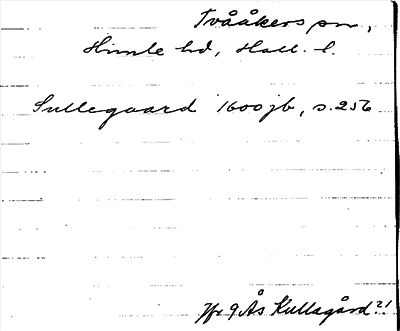 Tvååkers sn,
Himle hd, Hall. l.
Sullegaard 1600 jb, s. 256
Jfr 9 Ås Kullagård?!